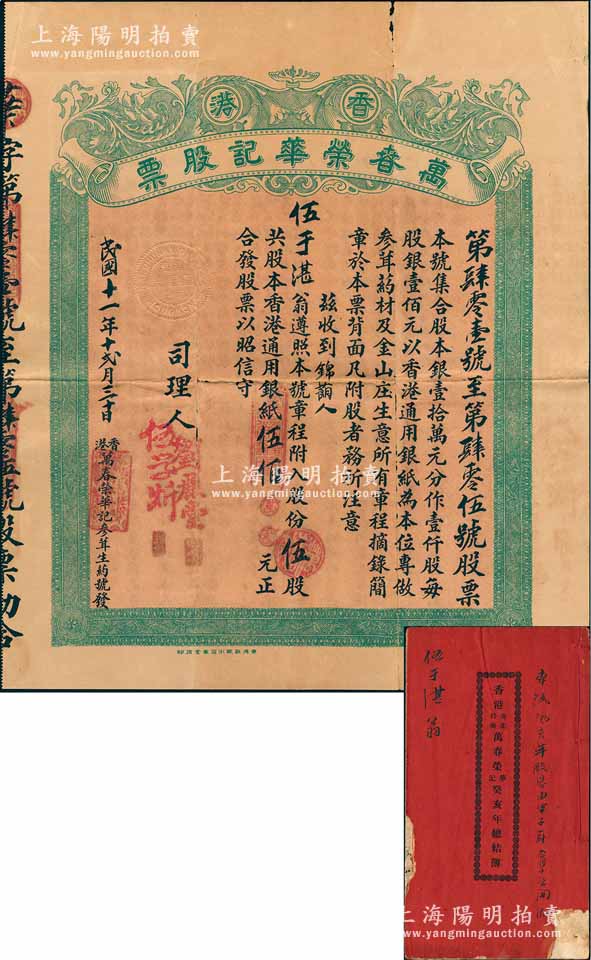 上海陽明拍賣
www.yangmingauction.com
香港
萬春榮華記股票
第肆零壹號至第肆零伍號股票
本號集合股本銀壹拾萬元分作壹仟股每
股銀壹佰元以香港通用銀紙為本位專做
參茸葯材及金山庄生意所有章程摘錄簡
章於本票背面凡附股者務所注意
茲收到錦
人
伍于湛翁遵照本號章程附入股份伍股
共股本香港通用銀紙伍佰元正
合發股票以昭信守
司理人
民國十一年十弍月三十日
香港萬春榮華記參茸生葯號發
字第肆零壹號至第肆零伍號股票勘合
上海陽明拍賣
www.yangmingauction.com
伍于湛翁
香港萬春榮華記癸亥年總結簿
上海陽明拍賣
www.yangmingauction.com